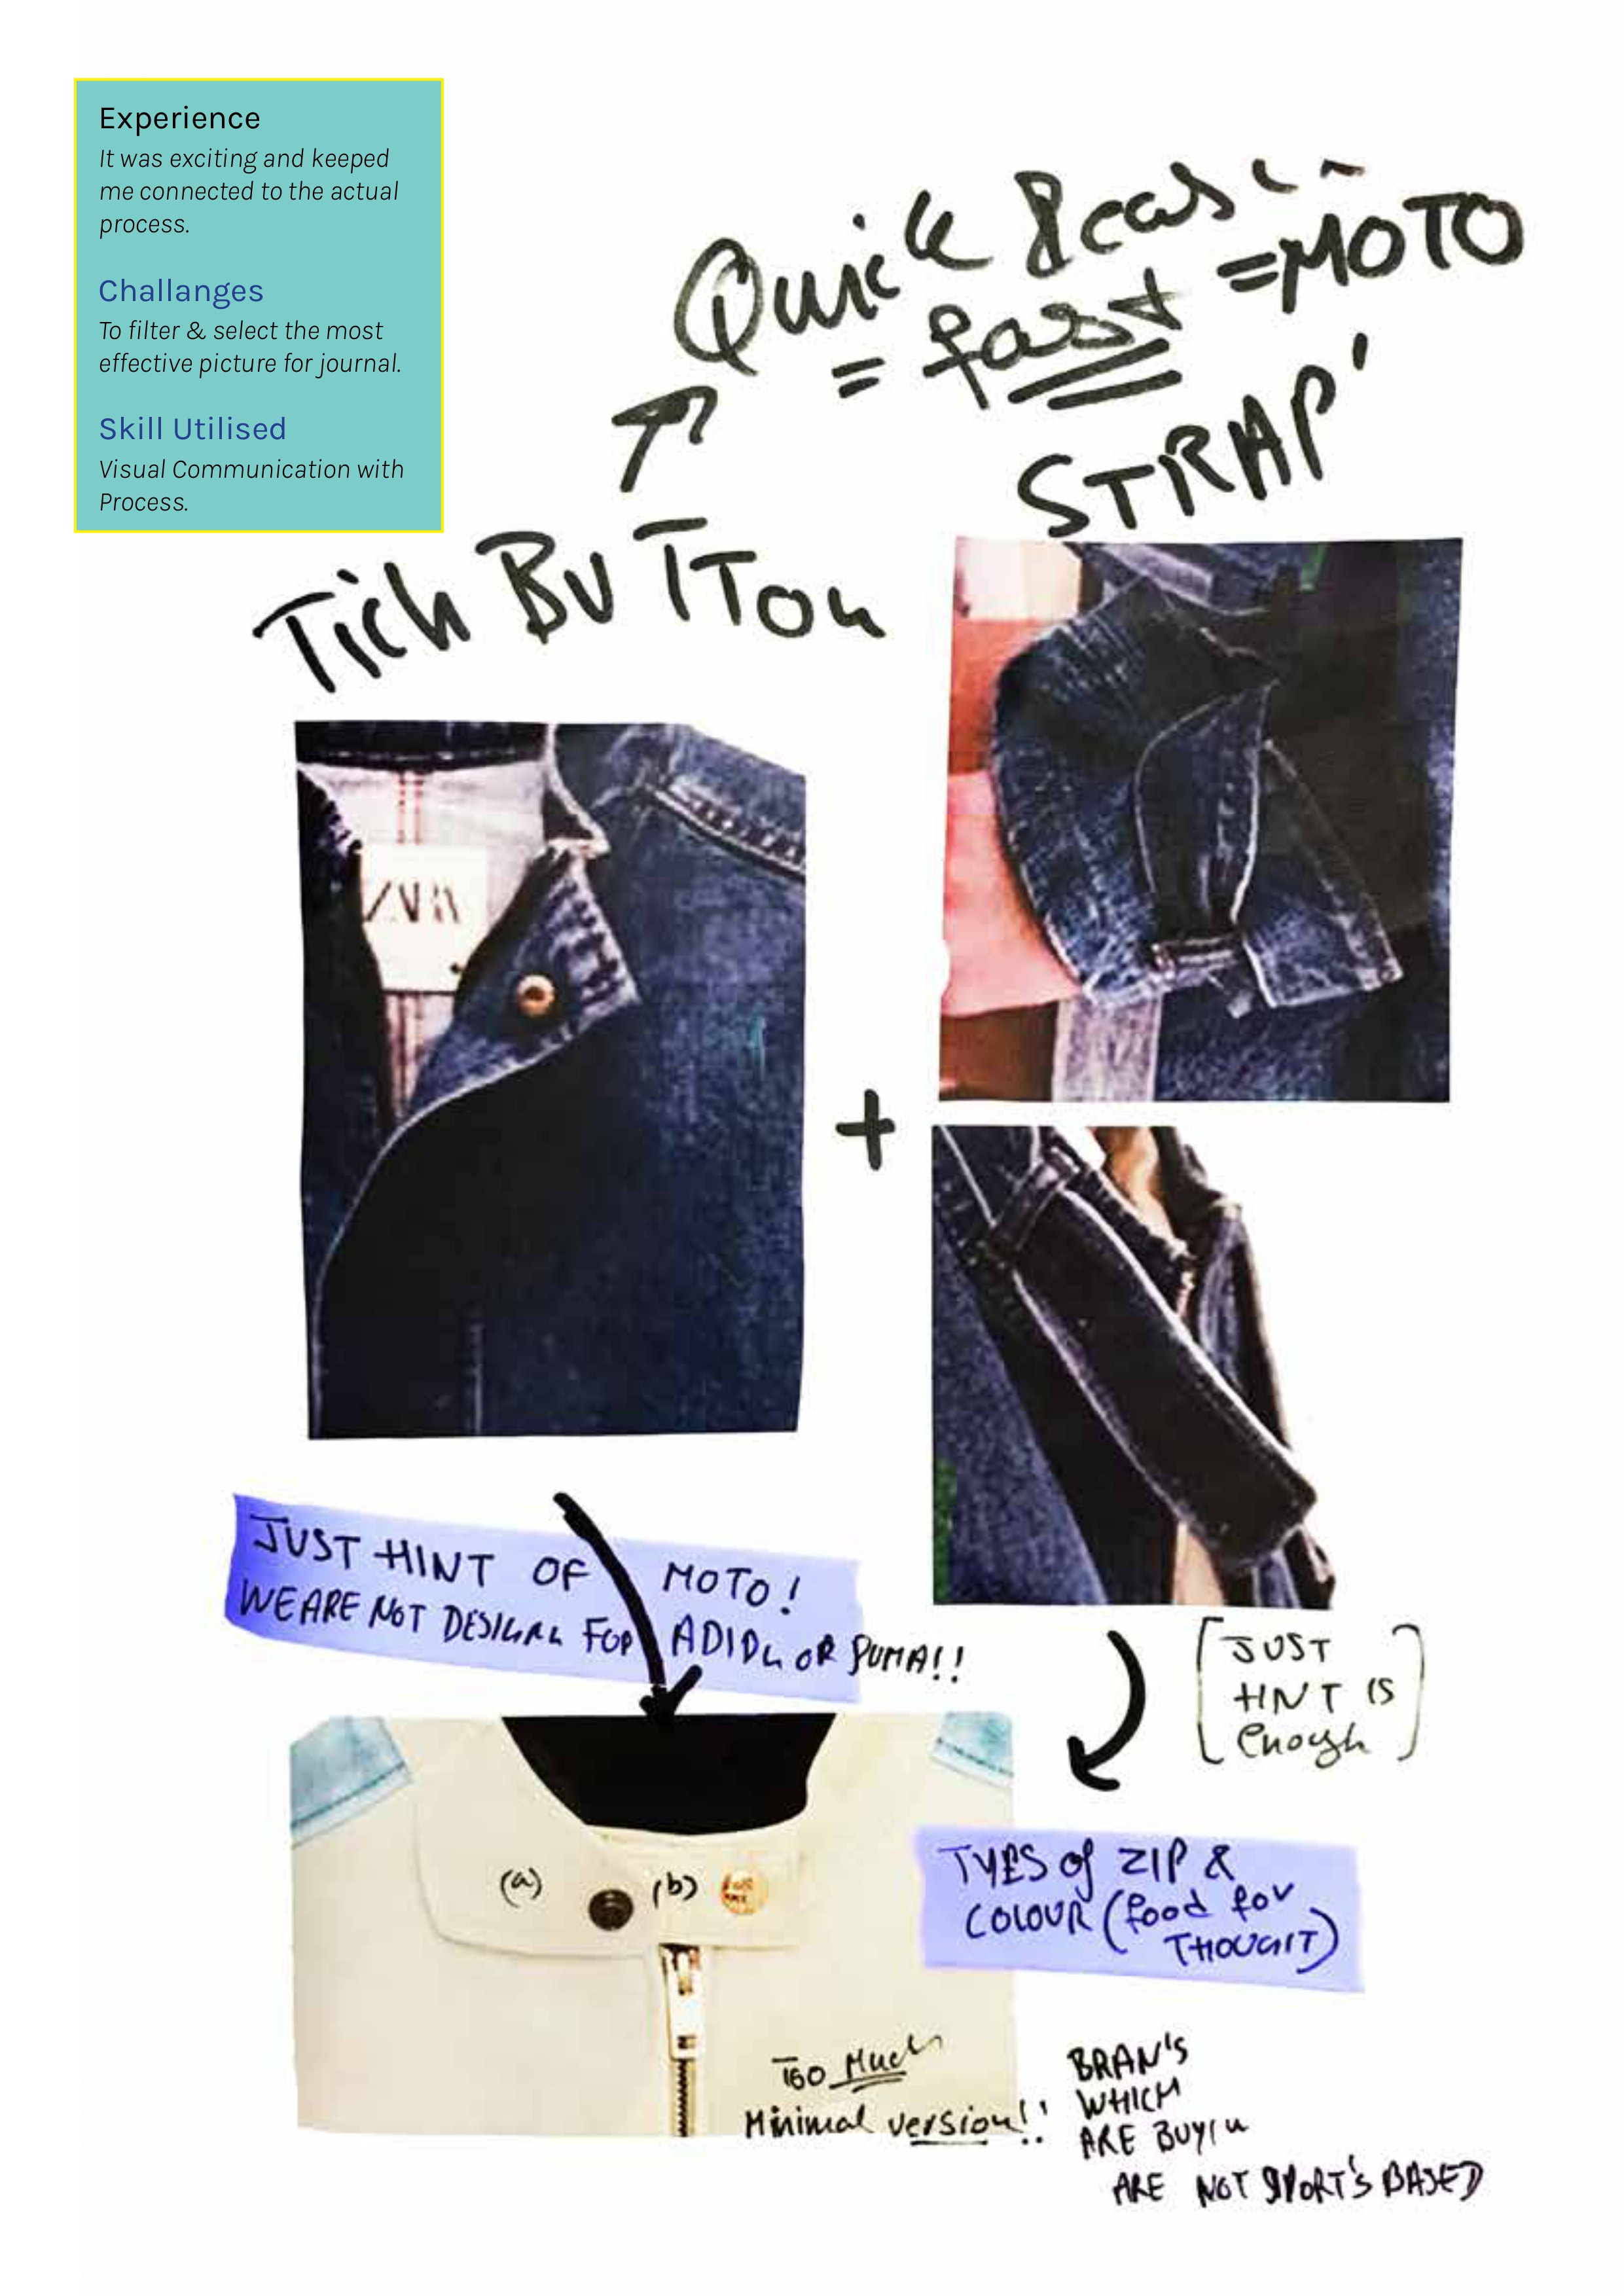 Experience
It was exciting and keeped
me connected to the actual
process.
Challanges
To filter & select the most
effective picture for journal.
Skill Utilised
Visual Communication with
Process.
Quick &
= fast = MOTO
STRAP'
Tich BUTTON
ZARA
+
JUST HINT OF MOTO!
WE ARE NOT FOR OR PUMA!!
[JUST
HINT IS
enough]
(a) (b)
TYES of ZIP &
COLOUR (food for
THOUGHT)
TOO Much
Minimal version!!
BRAN'S
WHICH
ARE
ARE NOT SPORT'S BASED